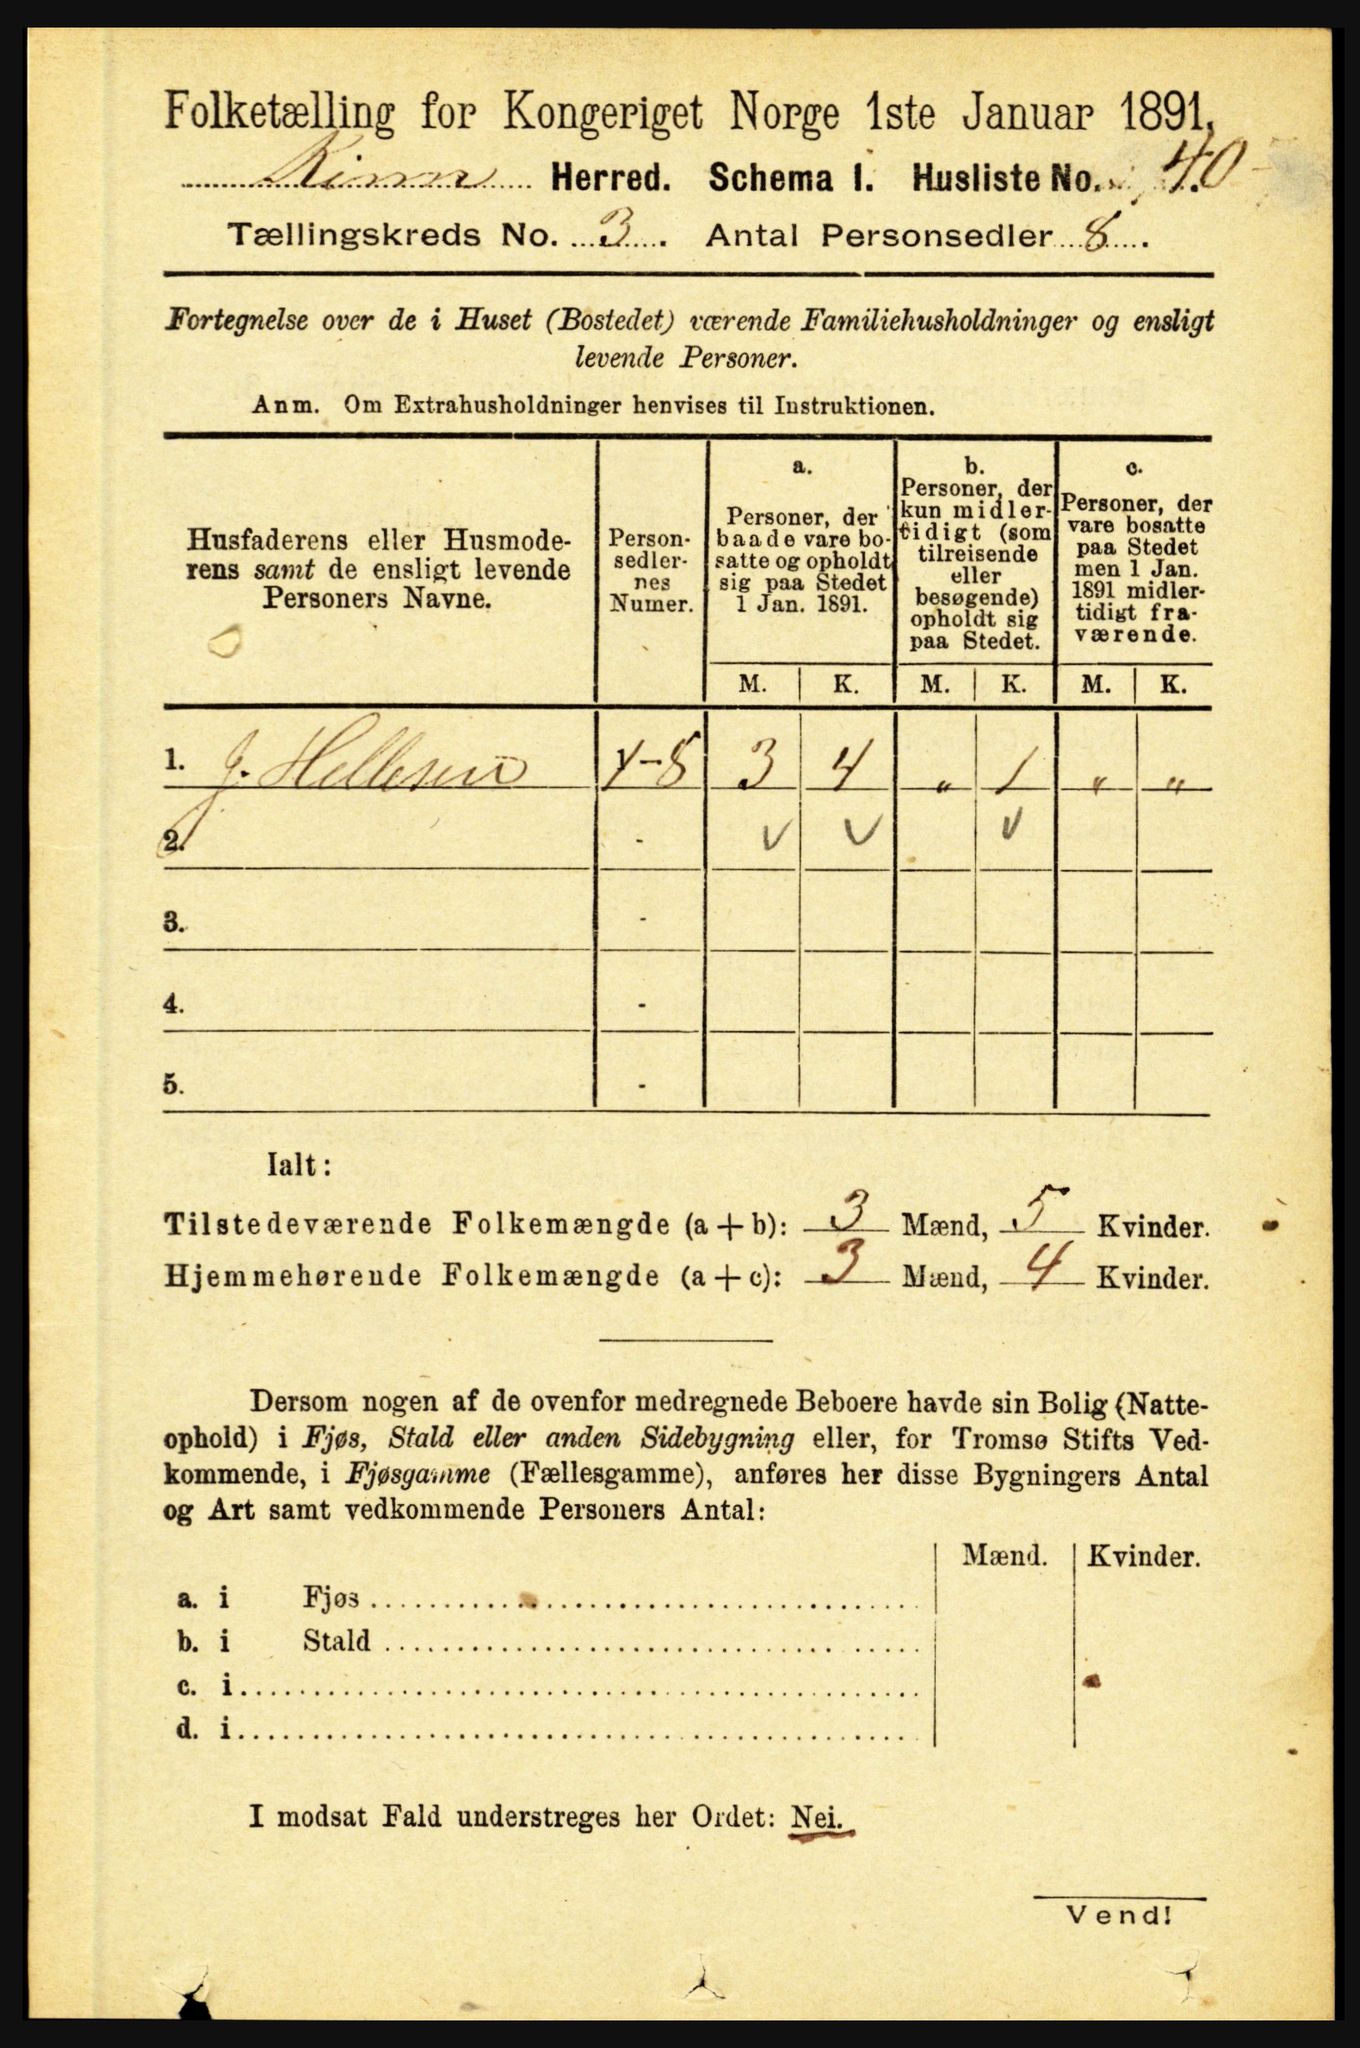 Folketælling for Kongeriget Norge 1ste Januar 1891.
Kinn Herred. Schema I. Husliste No. 40
Tællingskreds No. 3. Antal Personsedler 8.
Fortegnelse over de i Huset (Bostedet) værende Familiehusholdninger og ensligt
levende Personer.
Anm. Om Extrahusholdninger henvises til Instruktionen.
Husfaderens eller Husmode-
rens samt de ensligt levende
Personers Navne.
Person-
sedler-
nes
Numer.
a.
Personer, der
baade vare bo-
satte og opholdt
sig paa Stedet
1 Jan. 1891.
b.
Personer, der
kun midler-
tidigt (som
tilreisende
eller
besøgende)
opholdt sig
paa Stedet.
c.
Personer, der
vare bosatte
paa Stedet
men 1 Jan.
1891 midler-
tidigt fra-
værende.
M. K. M. K. M. K.
1. J. Hellesen 1-8 3 4 „ 1 „ „
2. - v v v
3. -
4. -
5. -
Ialt:
Tilstedeværende Folkemængde (a + b): 3 Mænd, 5 Kvinder.
Hjemmehørende Folkemængde (a + c): 3 Mænd, 4 Kvinder.
Dersom nogen af de ovenfor medregnede Beboere havde sin Bolig (Natte-
ophold) i Fjøs, Stald eller anden Sidebygning eller, for Tromsø Stifts Ved-
kommende, i Fjøsgamme (Fællesgamme), anføres her disse Bygningers Antal
og Art samt vedkommende Personers Antal:
Mænd. Kvinder.
a. i Fjøs
b. i Stald
c. i
d. i
I modsat Fald understreges her Ordet: Nei.
Vend!